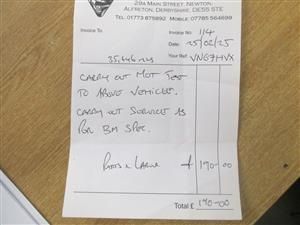 29A MAIN STREET, NEWTON,
ALFRETON, DERBYSHIRE DE55 5TE
TEL: 01773 875892 MOBILE: 07785 564699
Invoice To:
Invoice No: 114
Date: 25/02/25
Your Ref: VN67HVX
35,646 MLS
CARRY OUT MOT TEST
TO ABOVE VEHICLE.
CARRY OUT SERVICE AS
PER BM SPEC.
PARTS & LABOUR £ 190-00
Total £ 190-00